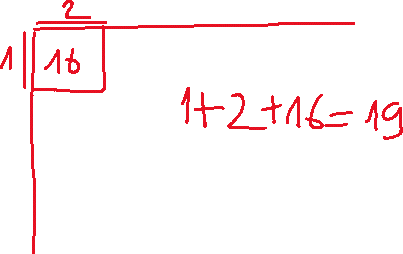 2
1 16
1+2+16=19